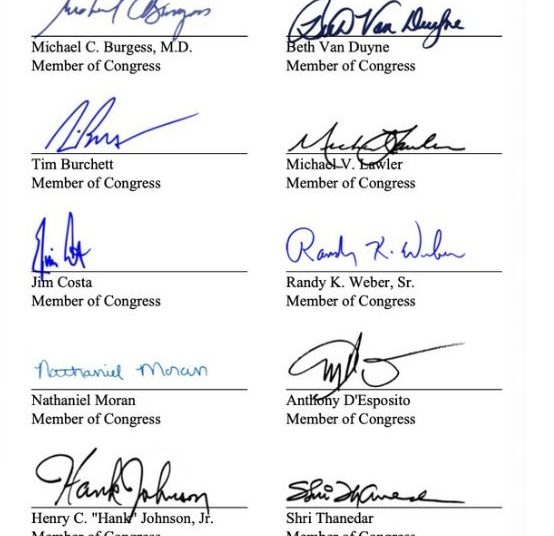 Michael C. Burgess Beth Van Duyne
Michael C. Burgess, M.D. Beth Van Duyne
Member of Congress Member of Congress
Michael V. Lawler, Member of Congress
Tim Burchett Michael V. Lawler
Member of Congress Member of Congress
Jim Costa Randy K. Weber
Jim Costa Randy K. Weber, Sr.
Member of Congress Member of Congress
Nathaniel Moran
Nathaniel Moran Anthony D'Esposito
Member of Congress Member of Congress
Hank Johnson Shri Thanedar
Henry C. "Hank" Johnson, Jr. Shri Thanedar
Member of Congress Member of Congress